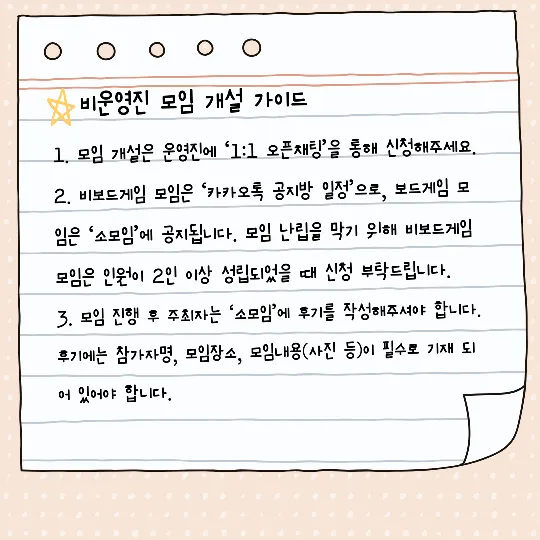 비운영진 모임 개설 가이드
1. 모임 개설은 운영진에 '1:1 오픈채팅'을 통해 신청해주세요.
2. 비보드게임 모임은 '카카오톡 공지방 일정'으로, 보드게임 모
임은 '소모임'에 공지됩니다. 모임 난립을 막기 위해 비보드게임
모임은 인원이 2인 이상 성립되었을 때 신청 부탁드립니다.
3. 모임 진행 후 주최자는 '소모임'에 후기를 작성해주셔야 합니다.
후기에는 참가자명, 모임장소, 모임내용(사진 등)이 필수로 기재 되
어 있어야 합니다.